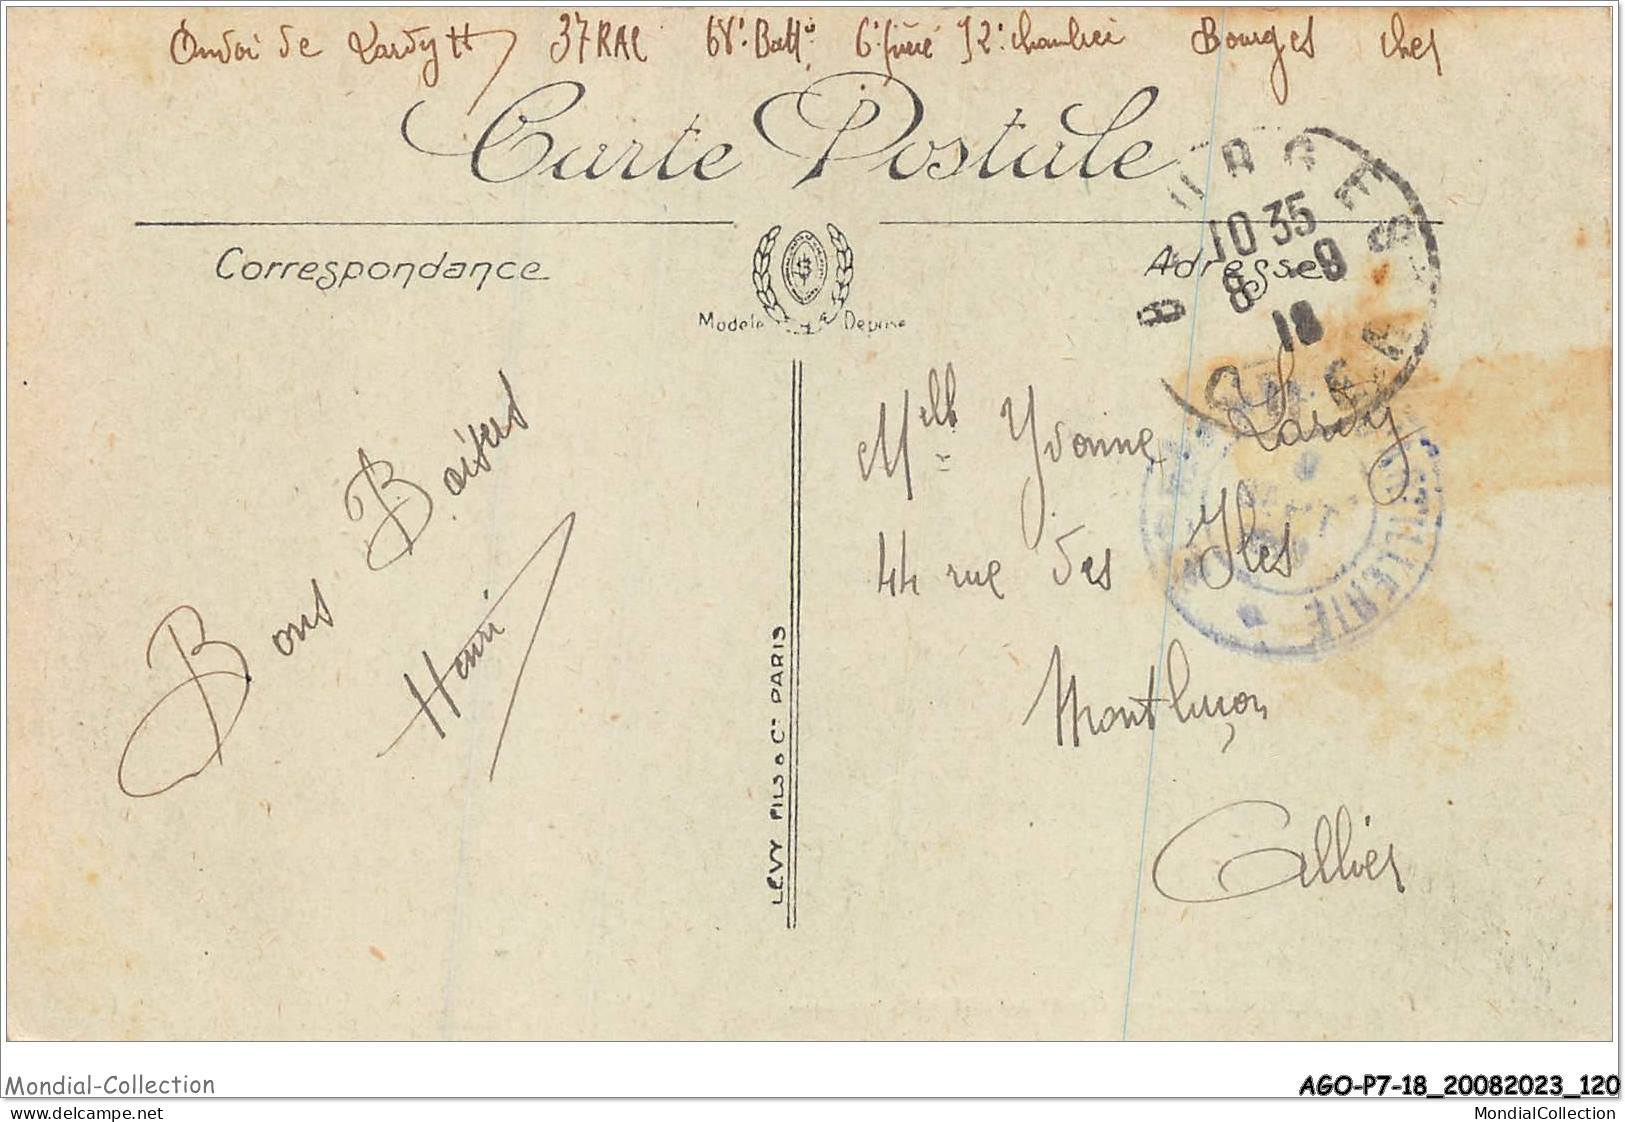 Envoi de Lardy H 37 RAC 68e Battie 6e pièce 12e chambrée Bourges Cher
Carte Postale
BOURGES CHER
10 35
8 - 9
18
Correspondance
Adresse
Modèle Déposé
Bons Baisers
Henri
LÉVY FILS & Cie PARIS
Melle Yvonne Lardy
44 rue des Iles
Montluçon
Allier
Mondial-Collection
AGO-P7-18_20082023_120
www.delcampe.net
MondialCollection